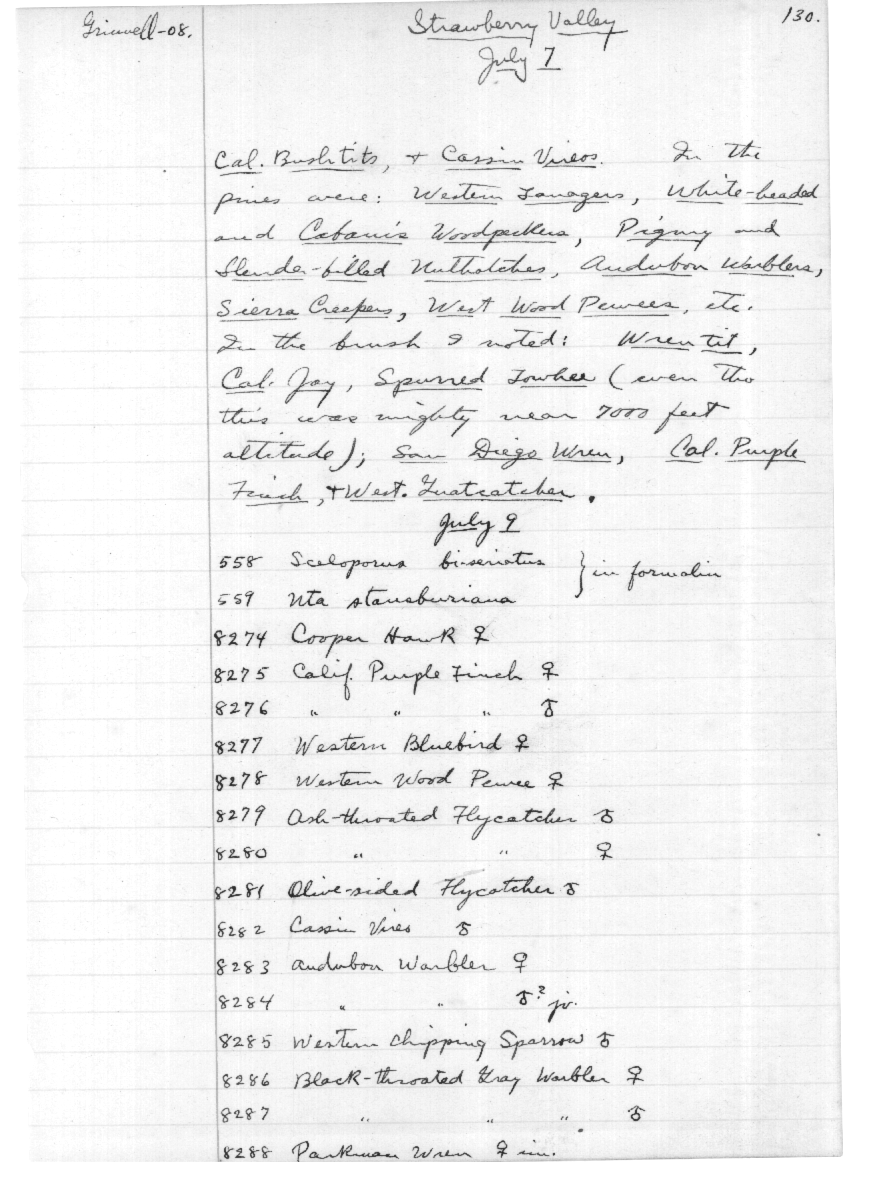 Grinnell-08.
Strawberry Valley
130.
July 7
Cal. Bushtits, + Cassin Vireos. In the
pines were: Western Tanagers, White-headed
and Cabanis Woodpeckers, Pigmy and
Slender-billed Nuthatches, Audubon Warblers,
Sierra Creepers, West Wood Pewees, etc.
In the brush I noted: Wren tit,
Cal. Jay, Spurred Towhee (even tho
this was mighty near 7000 feet
altitude); San Diego Wren, Cal. Purple
Finch, + West. Gnatcatcher.
July 9
558 Sceloporus bi-seriatus } in formalin
559 Uta stansburiana
8274 Cooper Hawk ♀
8275 Calif. Purple Finch ♀
8276 " " " ♂
8277 Western Bluebird ♀
8278 Western Wood Pewee ♀
8279 Ash-throated Flycatcher ♂
8280 " " ♀
8281 Olive-sided Flycatcher ♂
8282 Cassin Vireo ♂
8283 Audubon Warbler ♀
8284 " " ♂? jv.
8285 Western Chipping Sparrow ♂
8286 Black-throated Gray Warbler ♀
8287 " " " ♂
8288 Parkman Wren ♀ im.